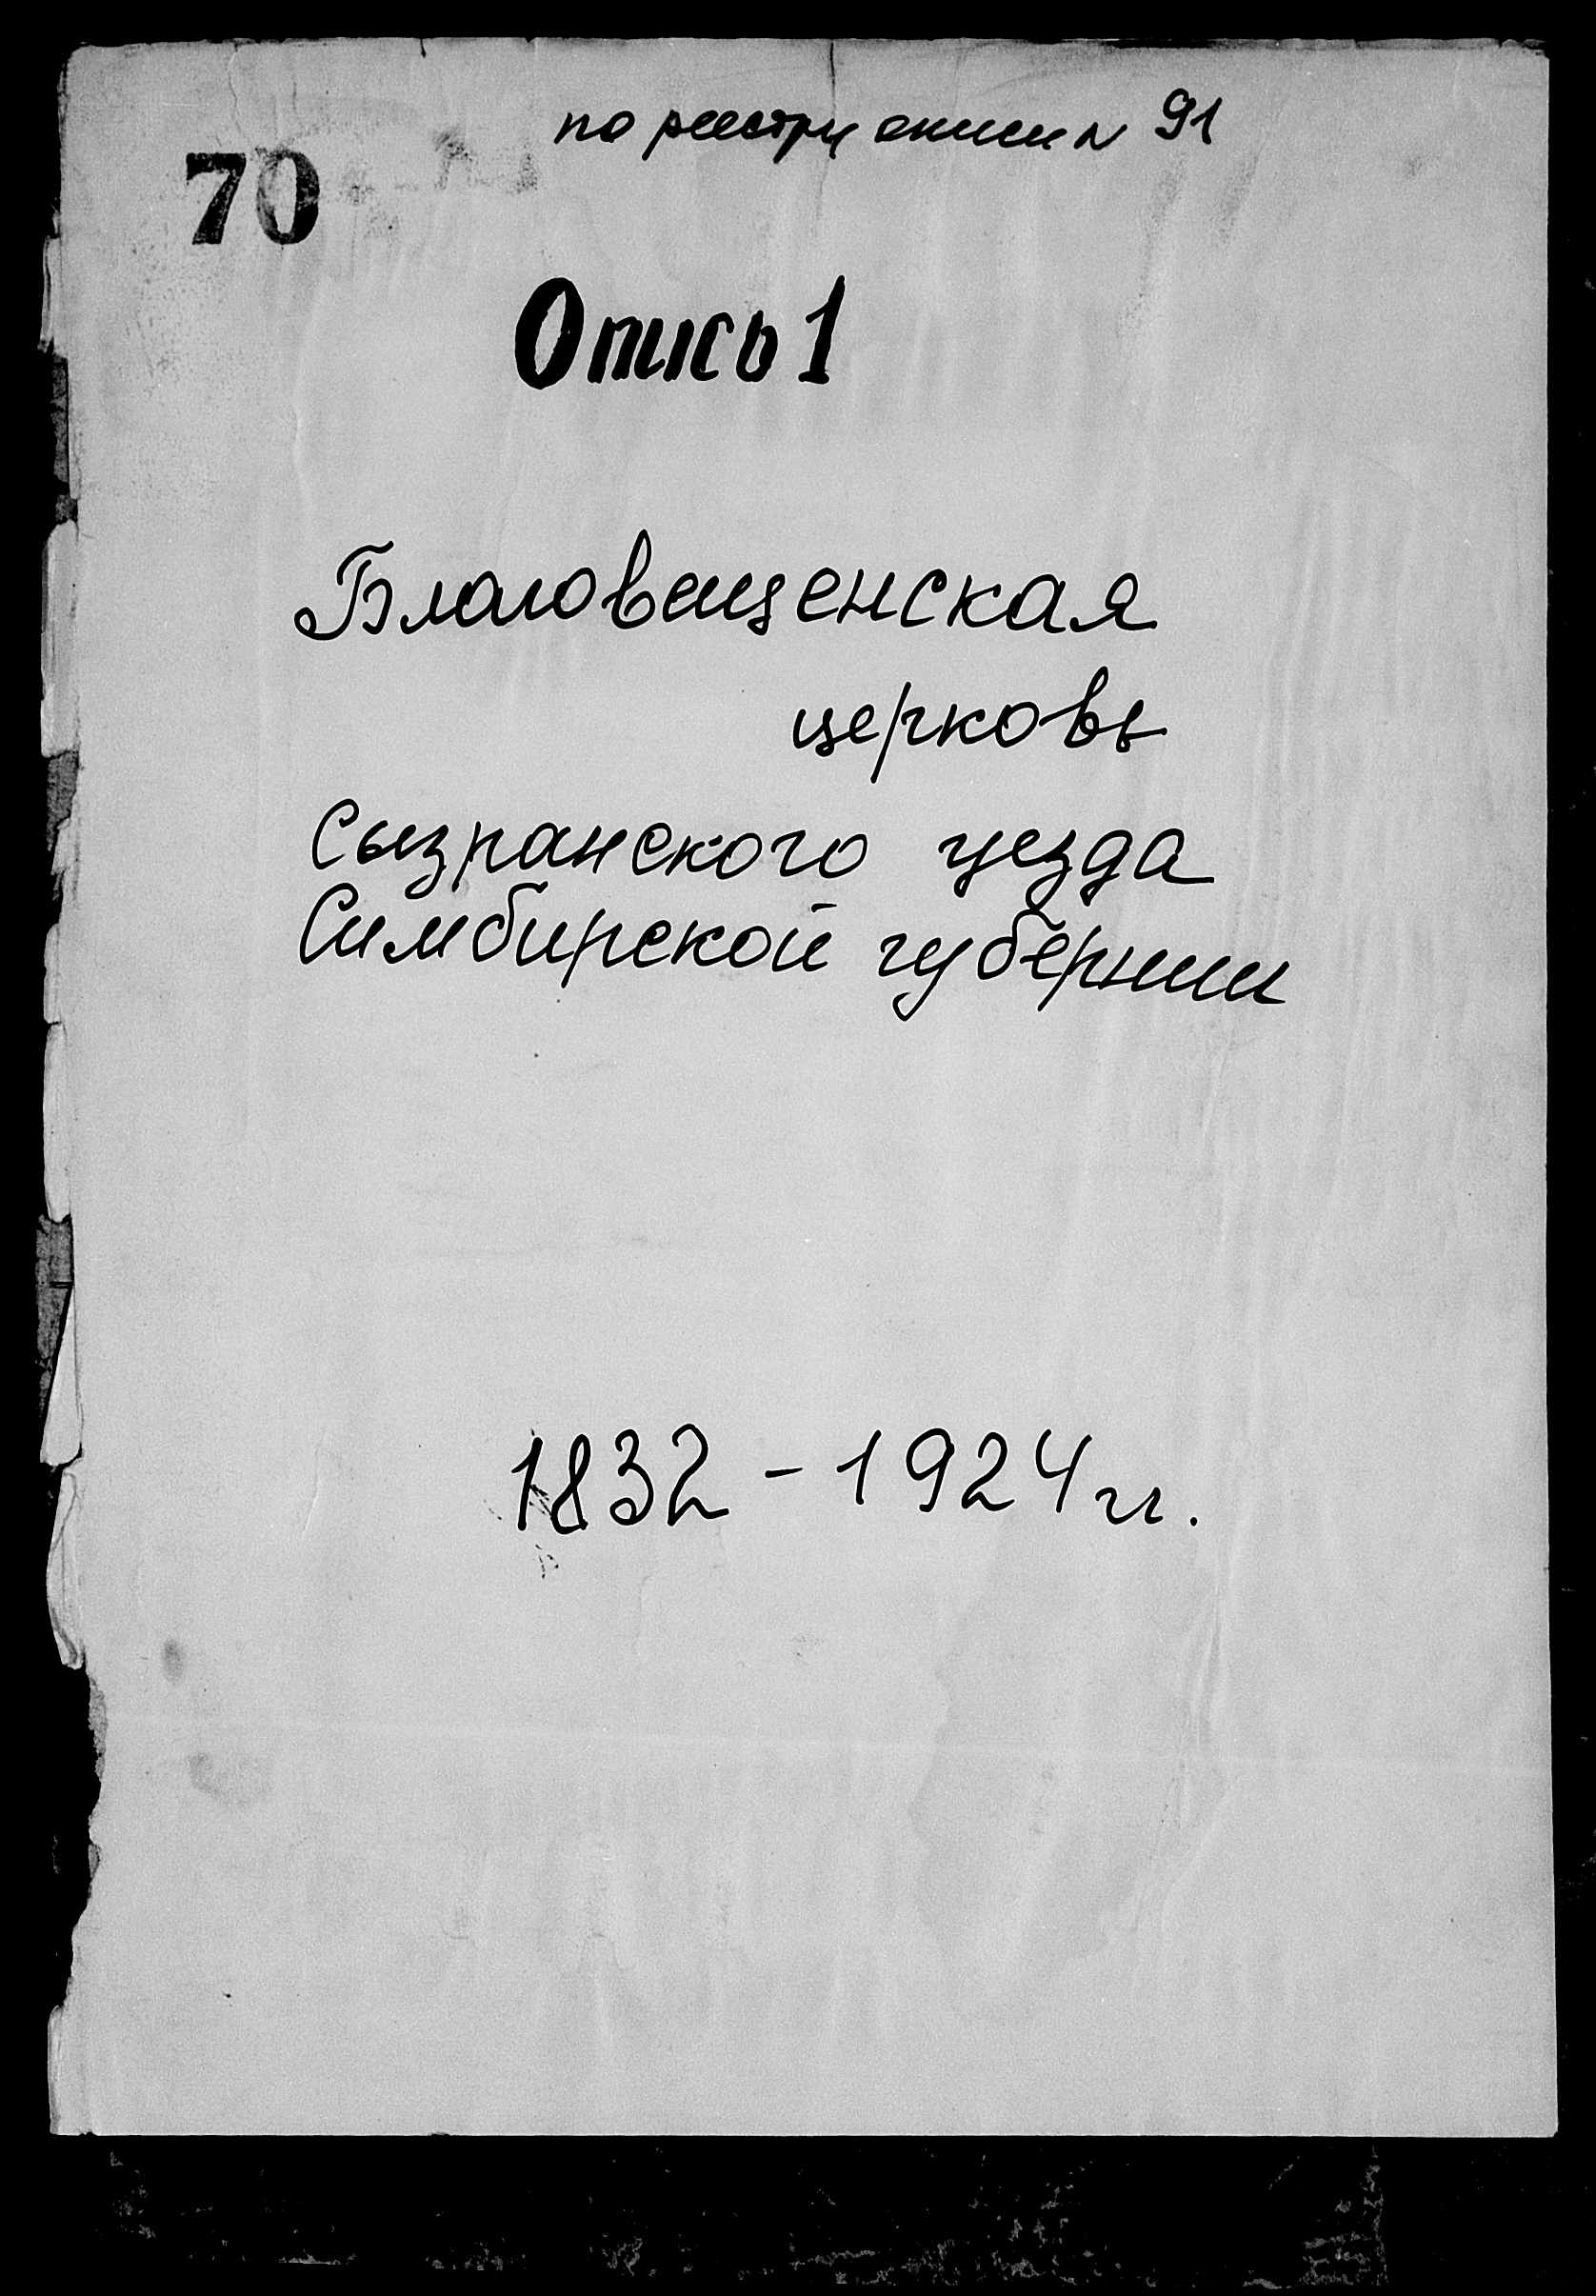 по реестру описи № 91
70
Опись 1
Благовещенская
церковь
Сызранского уезда
Симбирской губернии
1832 - 1924 гг.